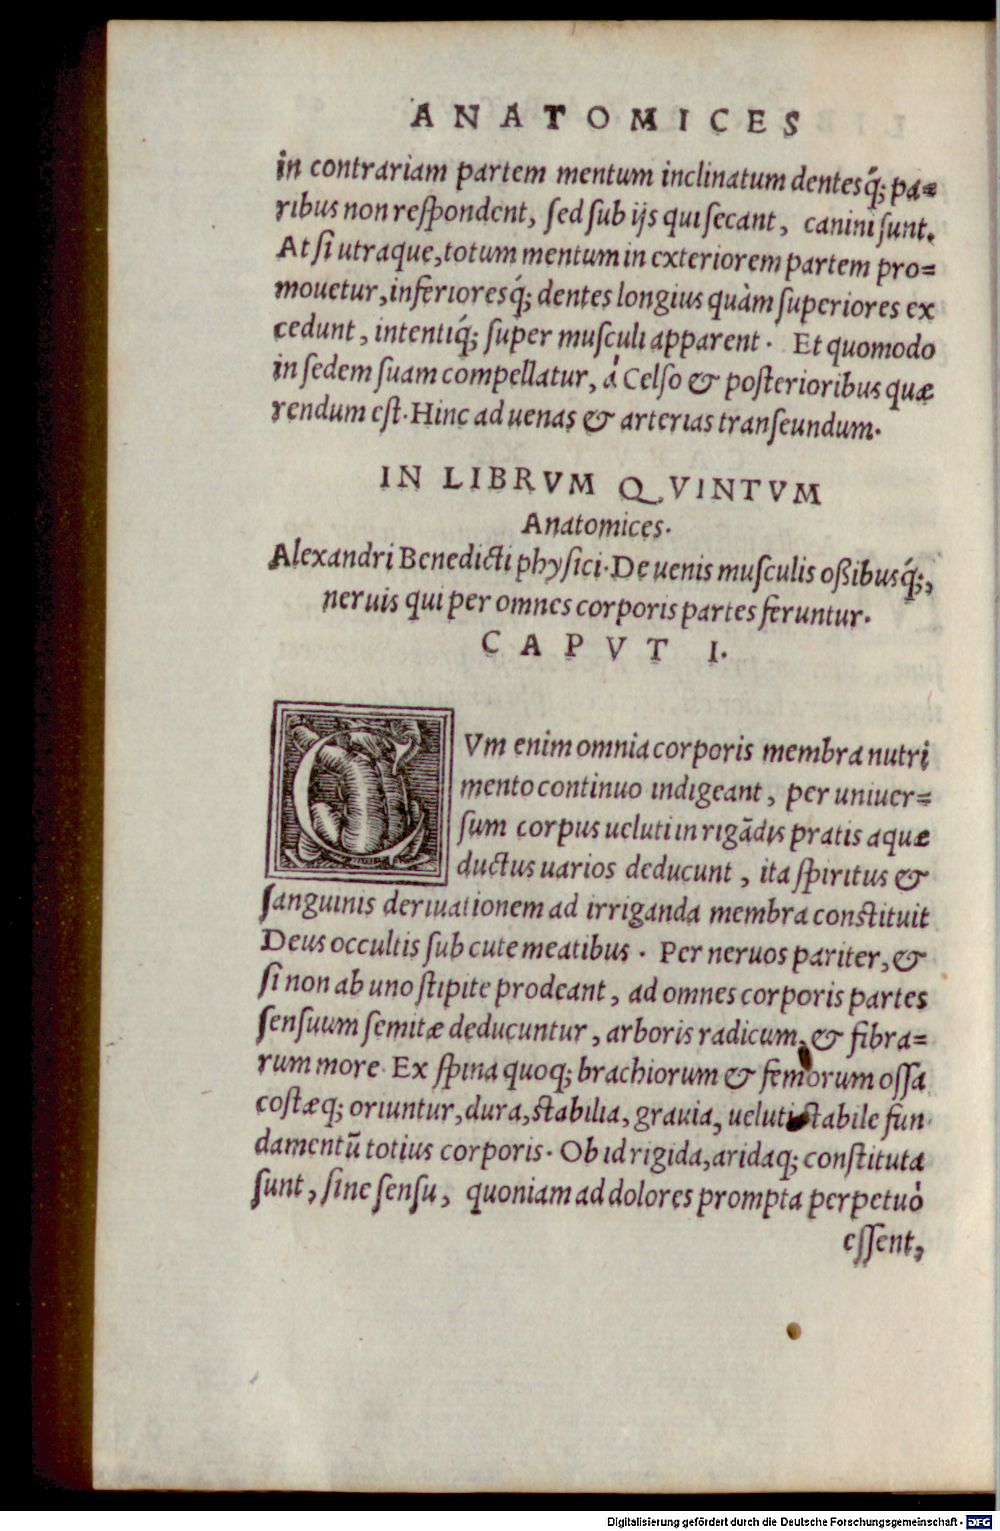 ANATOMICES
in contrariam partem mentum inclinatum dentesq́; pa=
ribus non reſpondent, ſed ſub ijs qui ſecant, canini ſunt.
At ſi utraque, totum mentum in exteriorem partem pro=
mouetur, inferioresq́; dentes longius quàm ſuperiores ex
cedunt, intentiq́; ſuper muſculi apparent. Et quomodo
in ſedem ſuam compellatur, à Celſo & poſterioribus quæ
rendum eſt. Hinc ad uenas & arterias tranſeundum.
IN LIBRVM QVINTVM
Anatomices.
Alexandri Benedicti phyſici. De uenis muſculis oßibusq́;,
neruis qui per omnes corporis partes feruntur.
CAPVT I.
CVm enim omnia corporis membra nutri
mento continuo indigeant, per uniuer=
ſum corpus ueluti in rigādis pratis aquæ
ductus uarios deducunt, ita ſpiritus &
ſanguinis deriuationem ad irriganda membra conſtituit
Deus occultis ſub cute meatibus. Per neruos pariter, &
ſi non ab uno ſtipite prodeant, ad omnes corporis partes
ſenſuum ſemitæ deducuntur, arboris radicum, & fibra=
rum more. Ex ſpina quoq; brachiorum & femorum oſſa
coſtæq; oriuntur, dura, ſtabilia, grauia, ueluti ſtabile fun
damentū totius corporis. Ob id rigida, aridaq; conſtituta
ſunt, ſine ſenſu, quoniam ad dolores prompta perpetuò
eſſent,
Digitalisierung gefördert durch die Deutsche Forschungsgemeinschaft - DFG